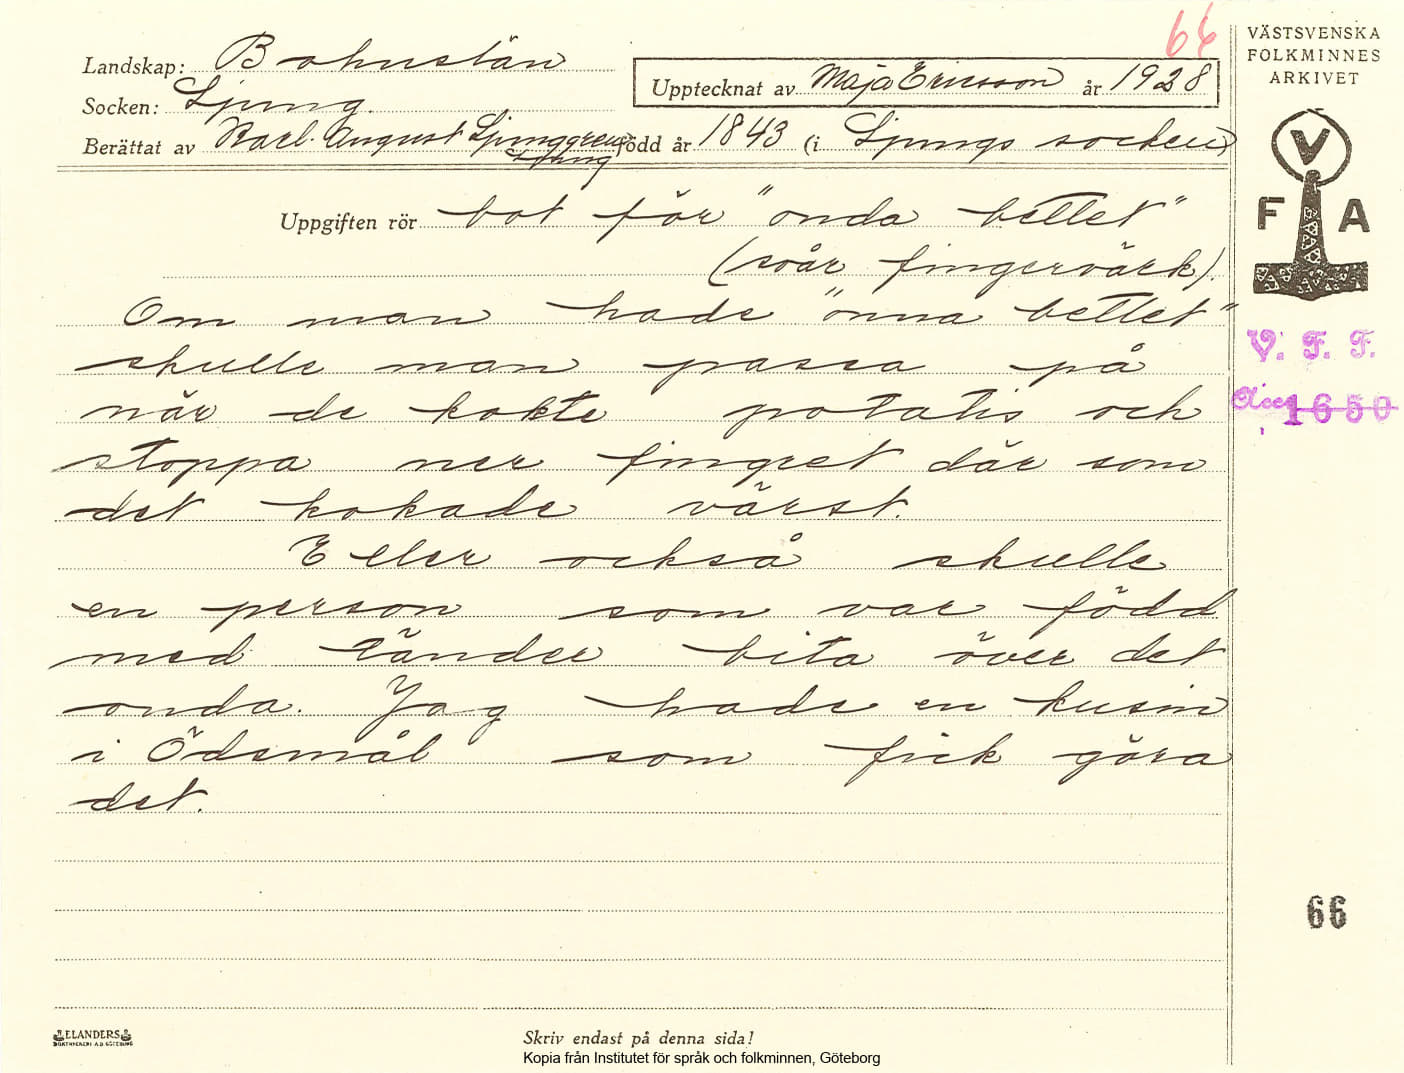 66
Landskap: Bohuslän
Socken: Ljung.
Upptecknat av Maja Ericsson år 1928
Berättat av Karl-August Ljunggren född år 1843 (i Ljungs socken)
Ljung
Uppgiften rör bot för "onda bettet"
(svår fingervärk).
Om man hade "önna bettet"
skulle man passa på
när de kokte potatis och
stoppa ner fingret där som
det kokade värst.
Eller också skulle
en person som var född
med tänder bita över det
onda. Jag hade en kusin
i Ödsmål som fick göra
det.
VÄSTSVENSKA
FOLKMINNES
ARKIVET
V
F A
V. F. F.
Acc 1650
66
ELANDERS
BOKTRYCKERI A.B. GÖTEBORG
Skriv endast på denna sida!
Kopia från Institutet för språk och folkminnen, Göteborg